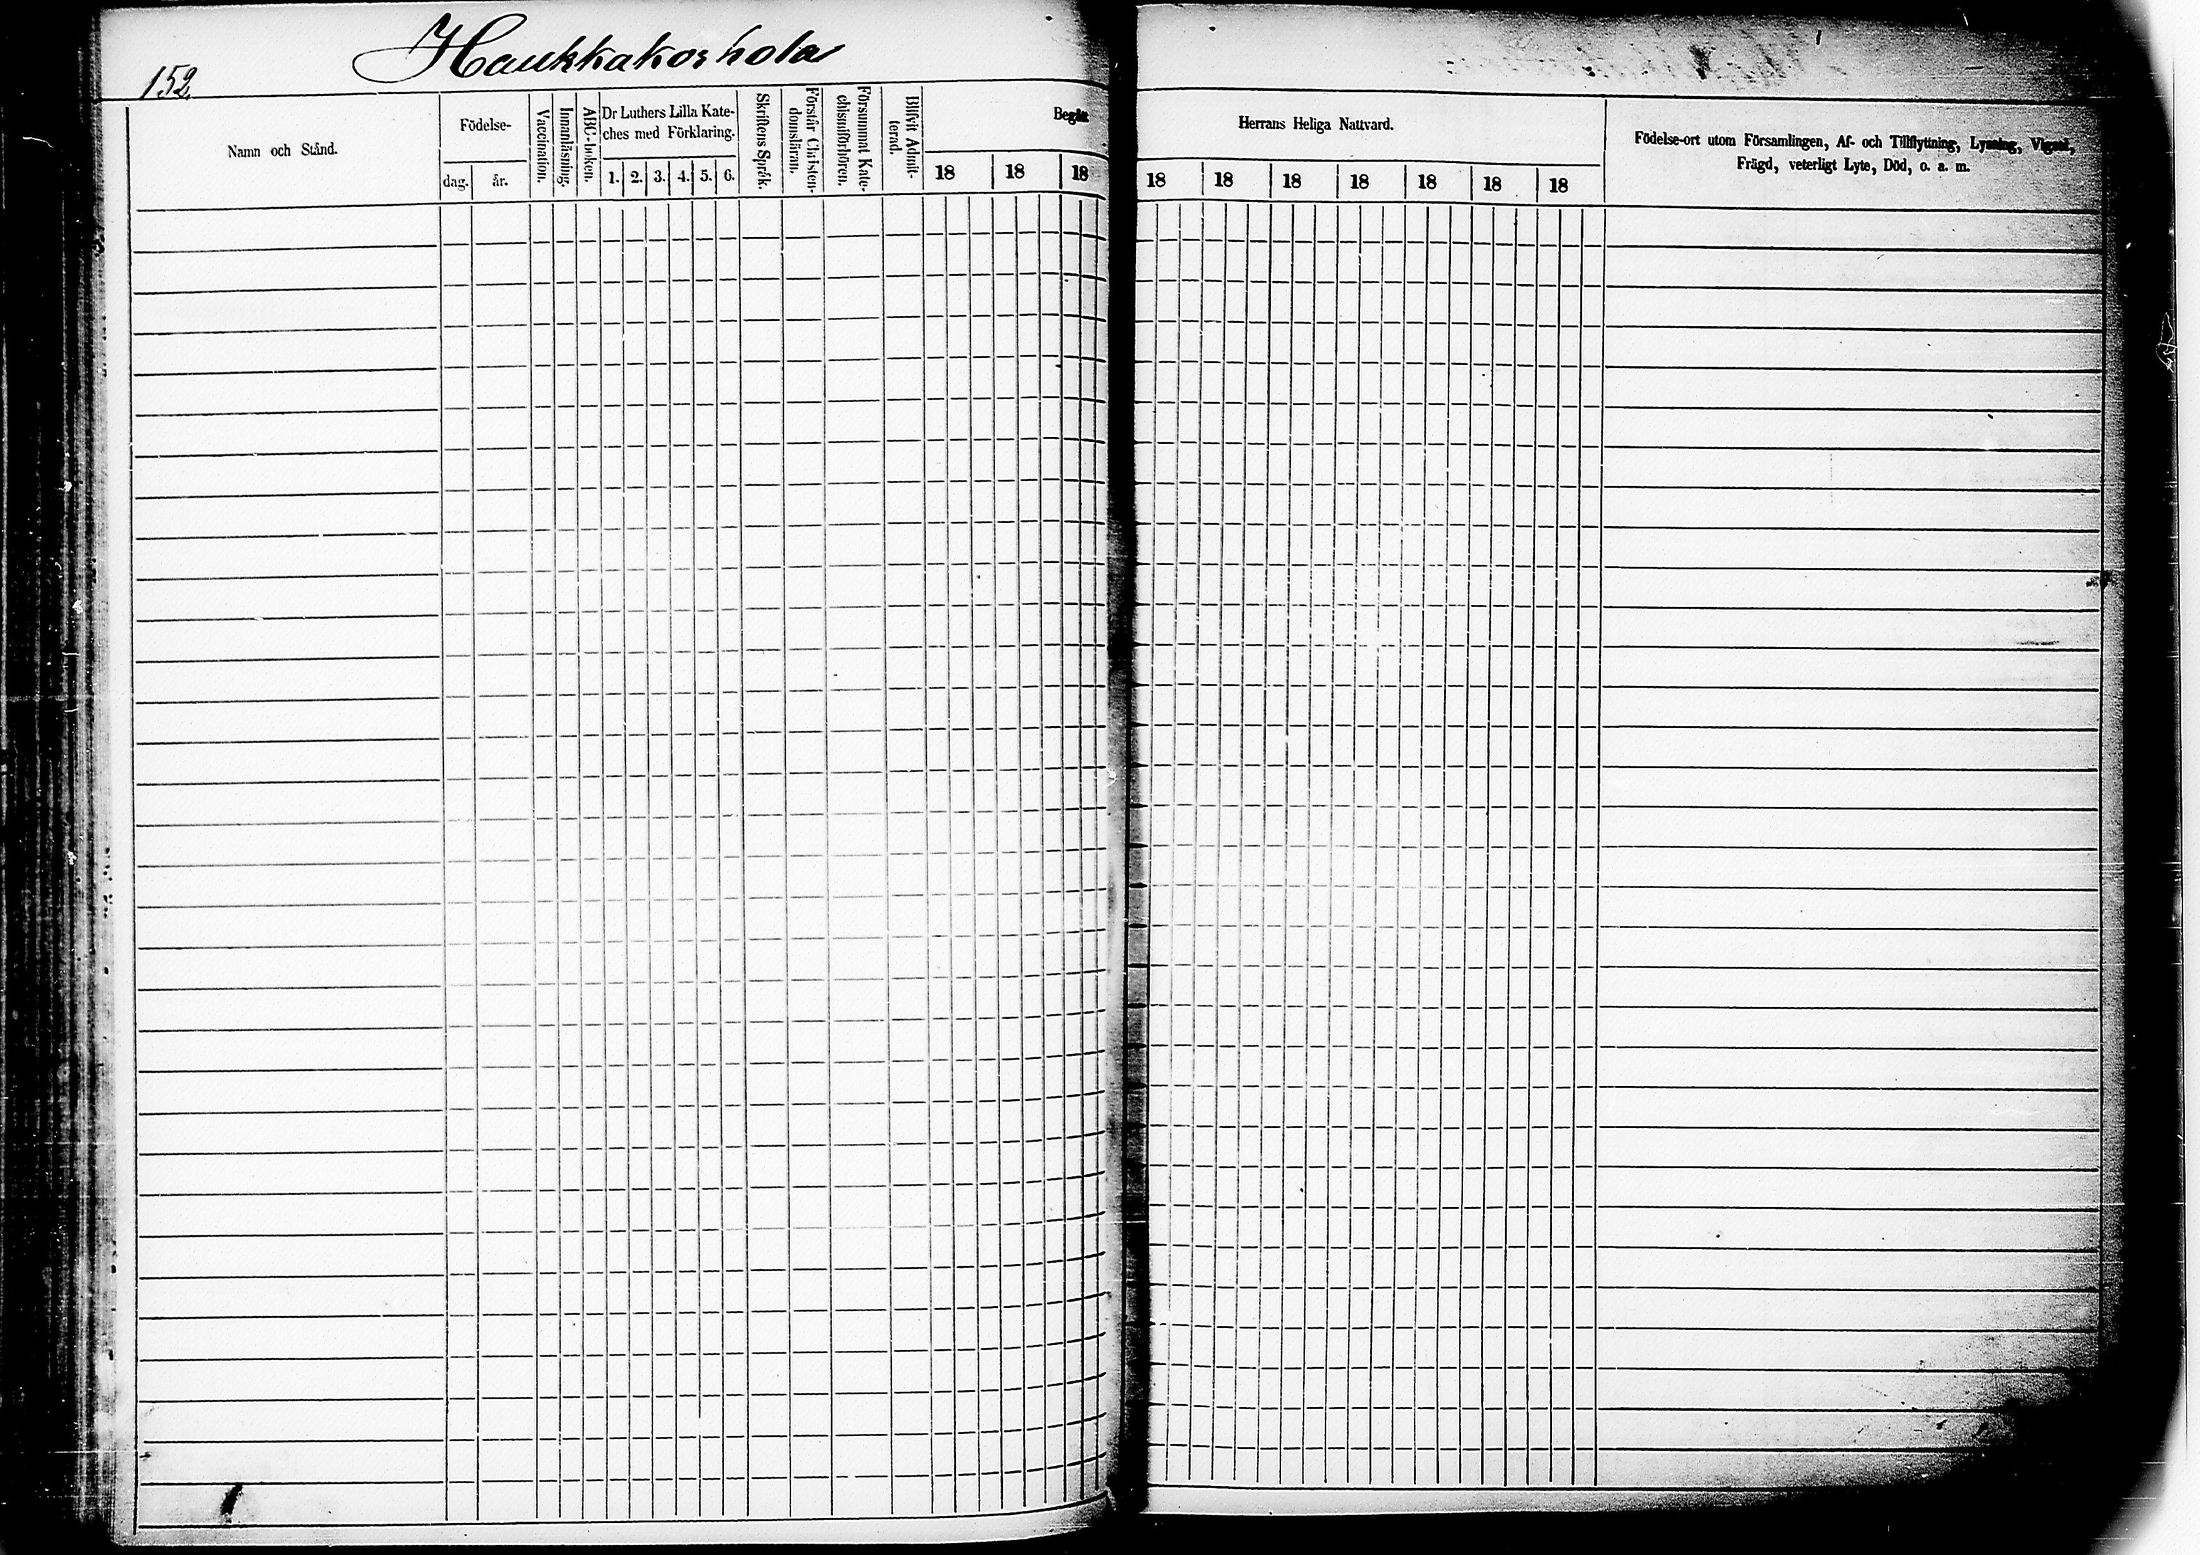 152
Haukkakorhola
Namn och Stånd.
Födelse-
dag.
år.
Vaccination.
Innanläsning.
ABC-boken.
Dr Luthers Lilla Kate-
ches med Förklaring.
1. 2. 3. 4. 5. 6.
Skriftens Språk.
Förstår Christen-
domsläran.
Försummat Kate-
chismiförhören.
Blifvit Admit-
terad.
Begått
18 18 18
Herrans Heliga Nattvard.
18 18 18 18 18 18 18
Födelse-ort utom Församlingen, Af- och Tillflyttning, Lysning, Vigsel,
Frägd, veterligt Lyte, Död, o. a. m.